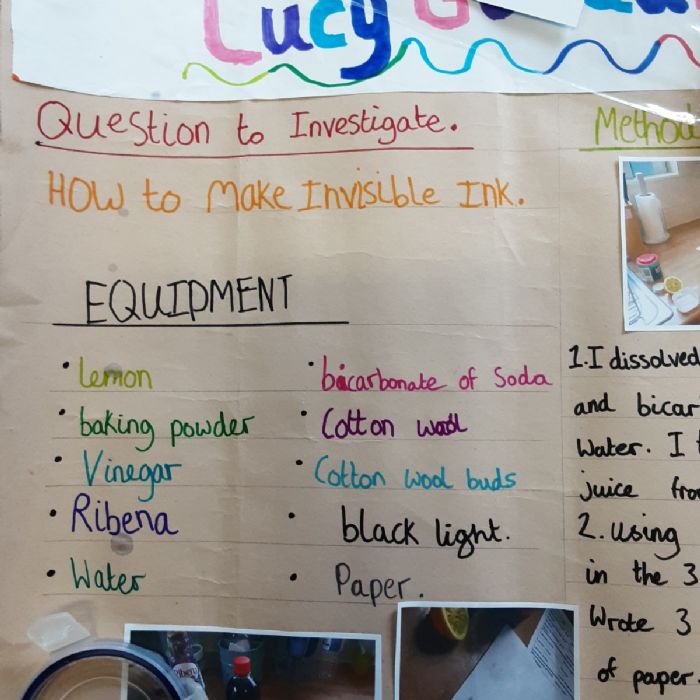 Lucy
Question to Investigate.
How to Make Invisible Ink.
EQUIPMENT
• lemon
• baking powder
• Vinegar
• Ribena
• Water
• bicarbonate of Soda
• Cotton wool
• Cotton wool buds
• black light.
• Paper.
Method
1. I dissolved
and bicar
Water. I
juice from
2. Using
in the 3
Wrote 3
of paper.